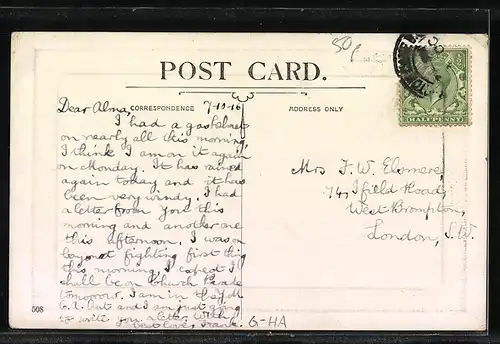 50
POST CARD.
Dear Alma,
CORRESPONDENCE
7-10-16
ADDRESS ONLY
HALFPENNY
I had a gashelmet
on nearly all this morning,
I think I am on it again
on Monday. It has rained
again today and it has
been very windy. I had
a letter from you this
morning and another one
this afternoon. I was on
bayonet fighting first thing
this morning. I expect I
shall be on Church Parade
tomorrow. I am in the Y.M.
C.A. but and I am just going
to write you a letter. With
best love, Frank.
Mrs F. W. Elsmere,
74, Ifield Road,
West Brompton,
London, S.W.
508
G-HA